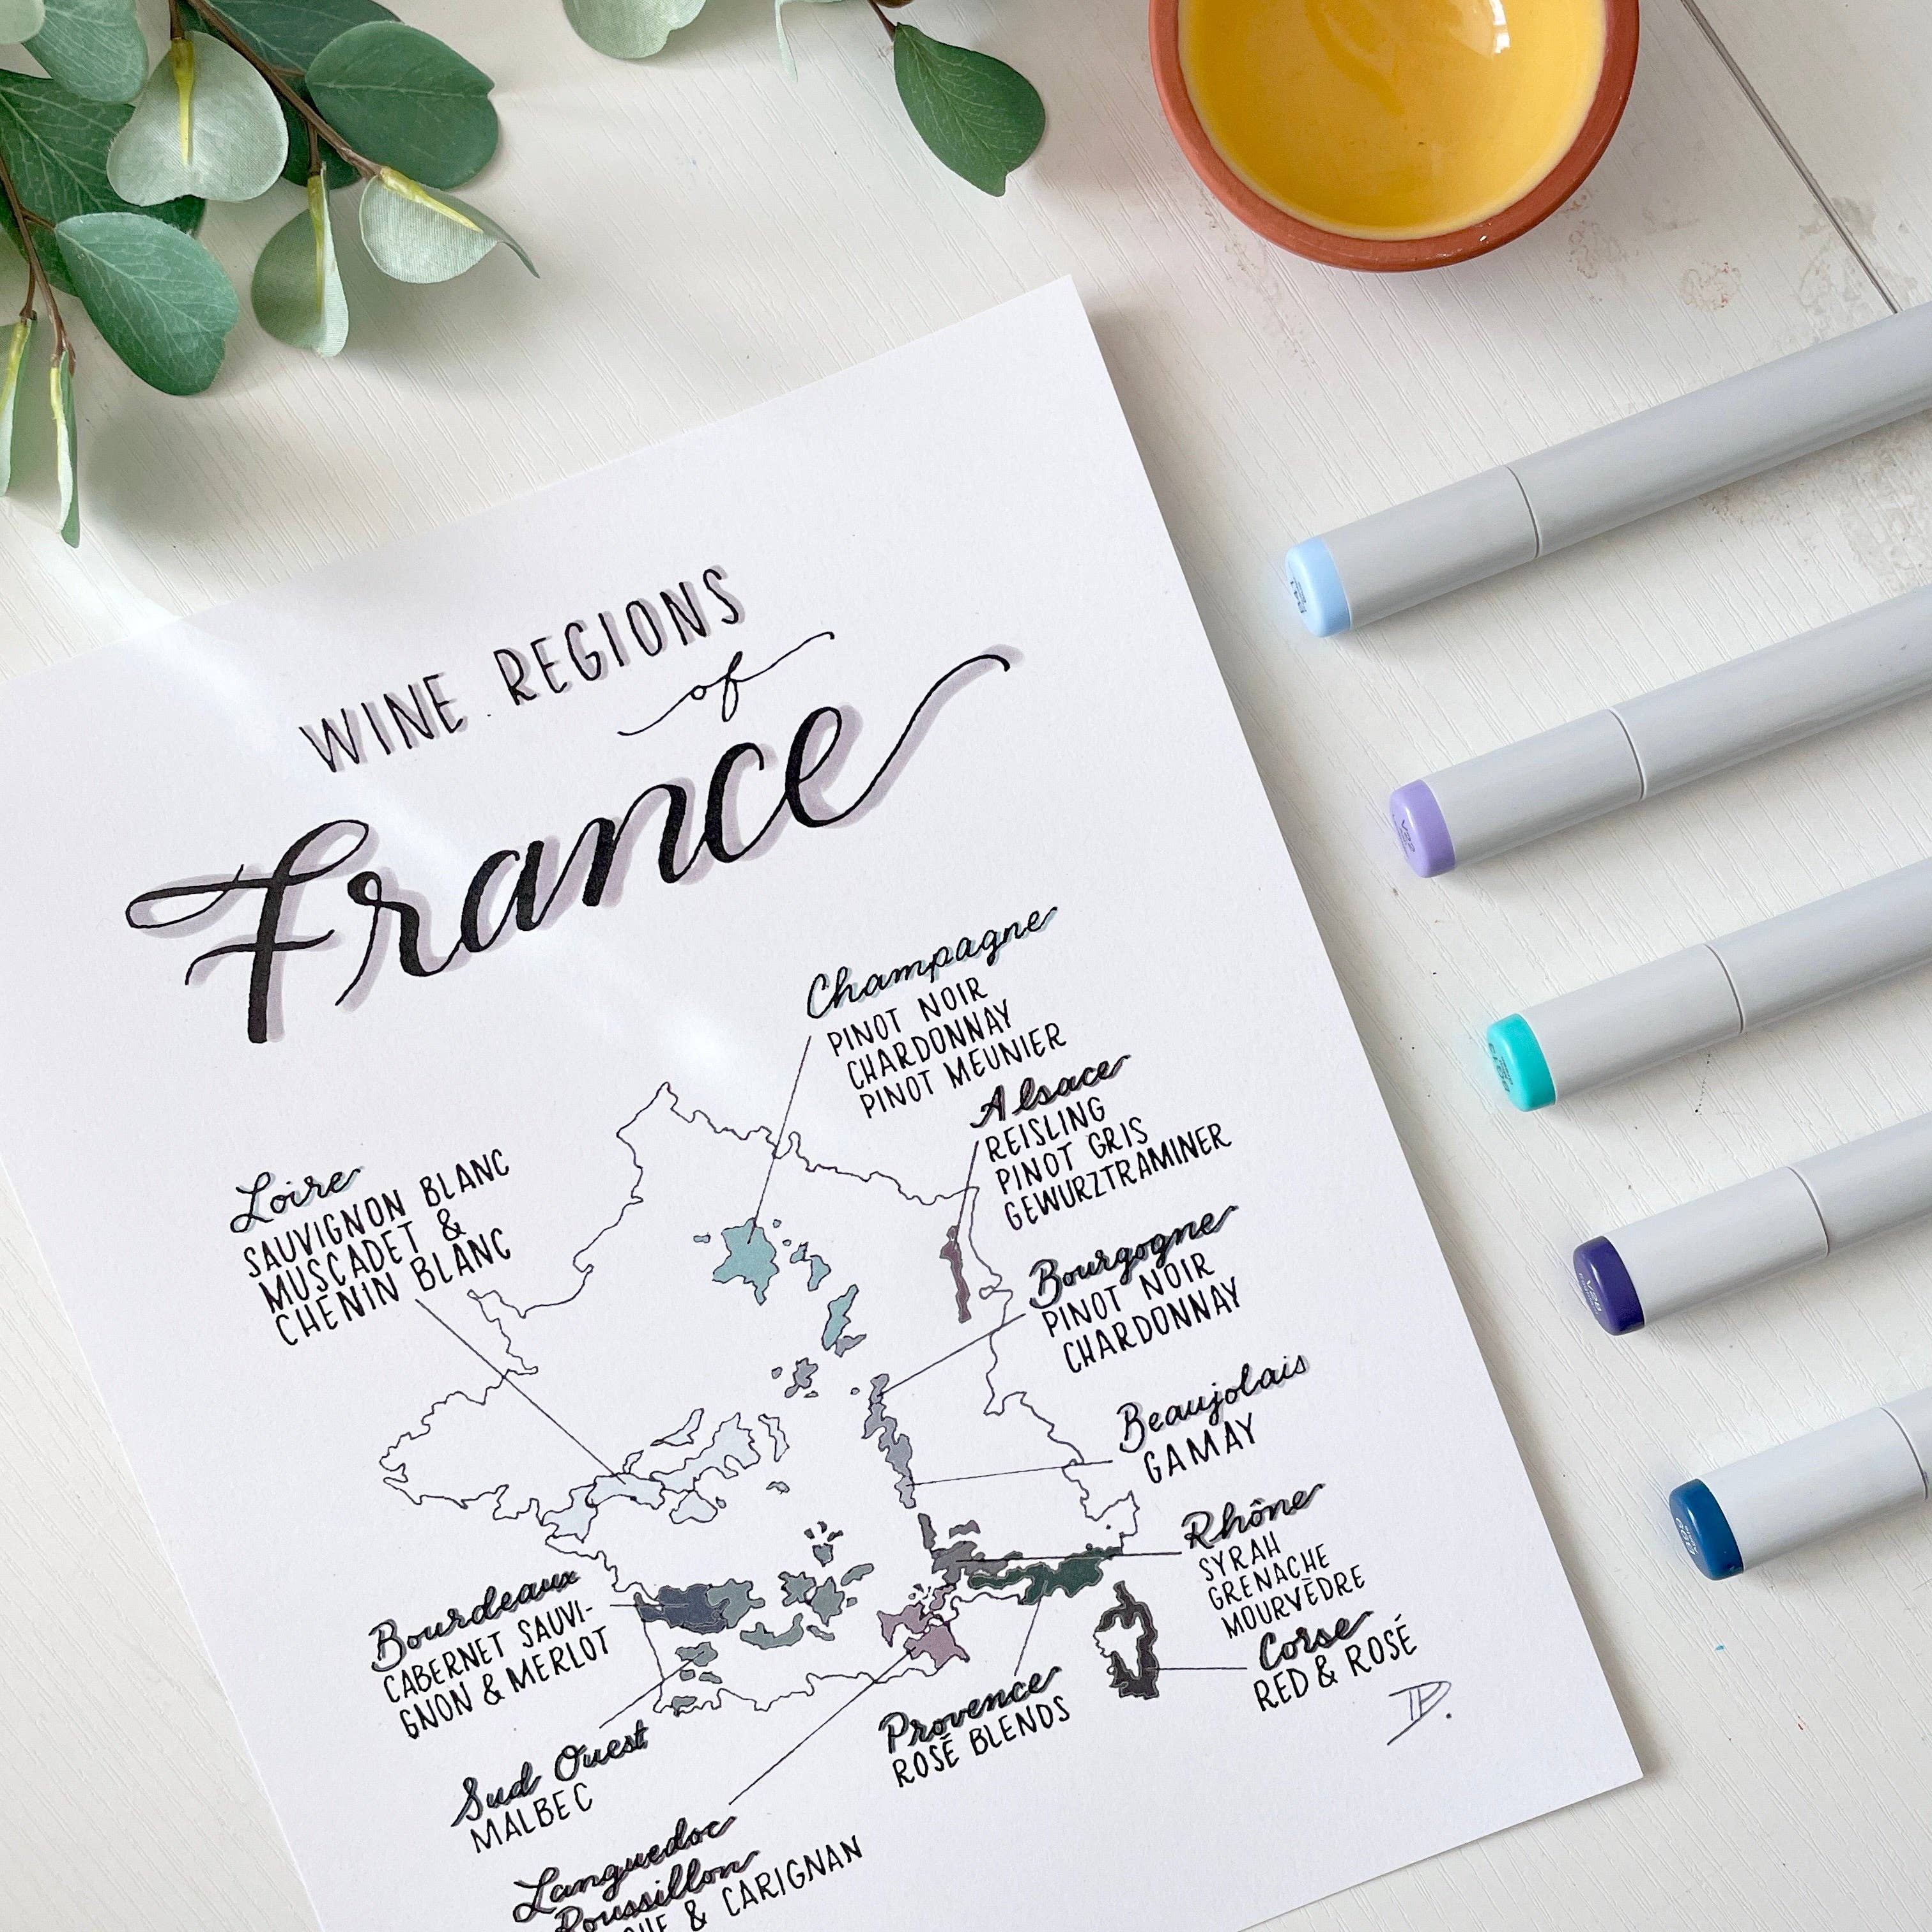 WINE REGIONS
of
France
Champagne
PINOT NOIR
CHARDONNAY
PINOT MEUNIER
Alsace
REISLING
PINOT GRIS
GEWURZTRAMINER
Loire
SAUVIGNON BLANC
MUSCADET &
CHENIN BLANC
Bourgogne
PINOT NOIR
CHARDONNAY
Beaujolais
GAMAY
Rhône
SYRAH
GRENACHE
MOURVÈDRE
Bordeaux
CABERNET SAUVI-
GNON & MERLOT
Corse
RED & ROSÉ
Provence
ROSÉ BLENDS
Sud Ouest
MALBEC
Languedoc
Roussillon
& CARIGNAN
B41
V22
V28